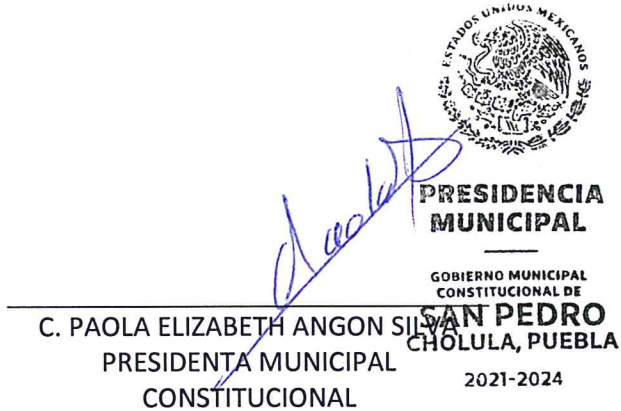 ESTADOS UNIDOS MEXICANOS
PRESIDENCIA
MUNICIPAL
GOBIERNO MUNICIPAL
CONSTITUCIONAL DE
SAN PEDRO
CHOLULA, PUEBLA
2021-2024
C. PAOLA ELIZABETH ANGON SILVA
PRESIDENTA MUNICIPAL
CONSTITUCIONAL